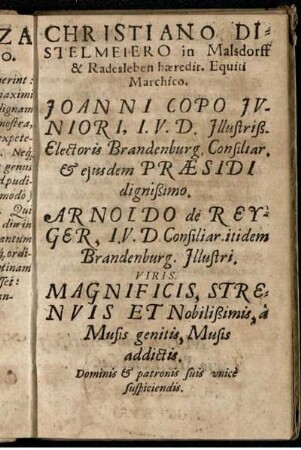 ZA
O.
uerint:
maximi
dignam
nostra,
expete-
Neq́
genus
modò)
Qui
diu in
antum
q́, ordi-
tinam
CHRISTIANO DI-
STELMEIERO in Malsdorff
& Radesleben hæredit. Equiti
Marchico.
JOANNI COPO JV-
NIORI, I.V.D. Illustriß.
Electoris Brandenburg. Consiliar.
& ejusdem PRÆSIDI
dignißimo.
ARNOLDO de REY-
GER, I.V.D. Consiliar. itidem
Brandenburg. Jllustri.
VIRIS.
MAGNIFICIS, STRE-
NVIS ET Nobilißimis, à
Musis genitis, Musis
addictis.
Dominis & patronis suis vnicè
suspiciendis.